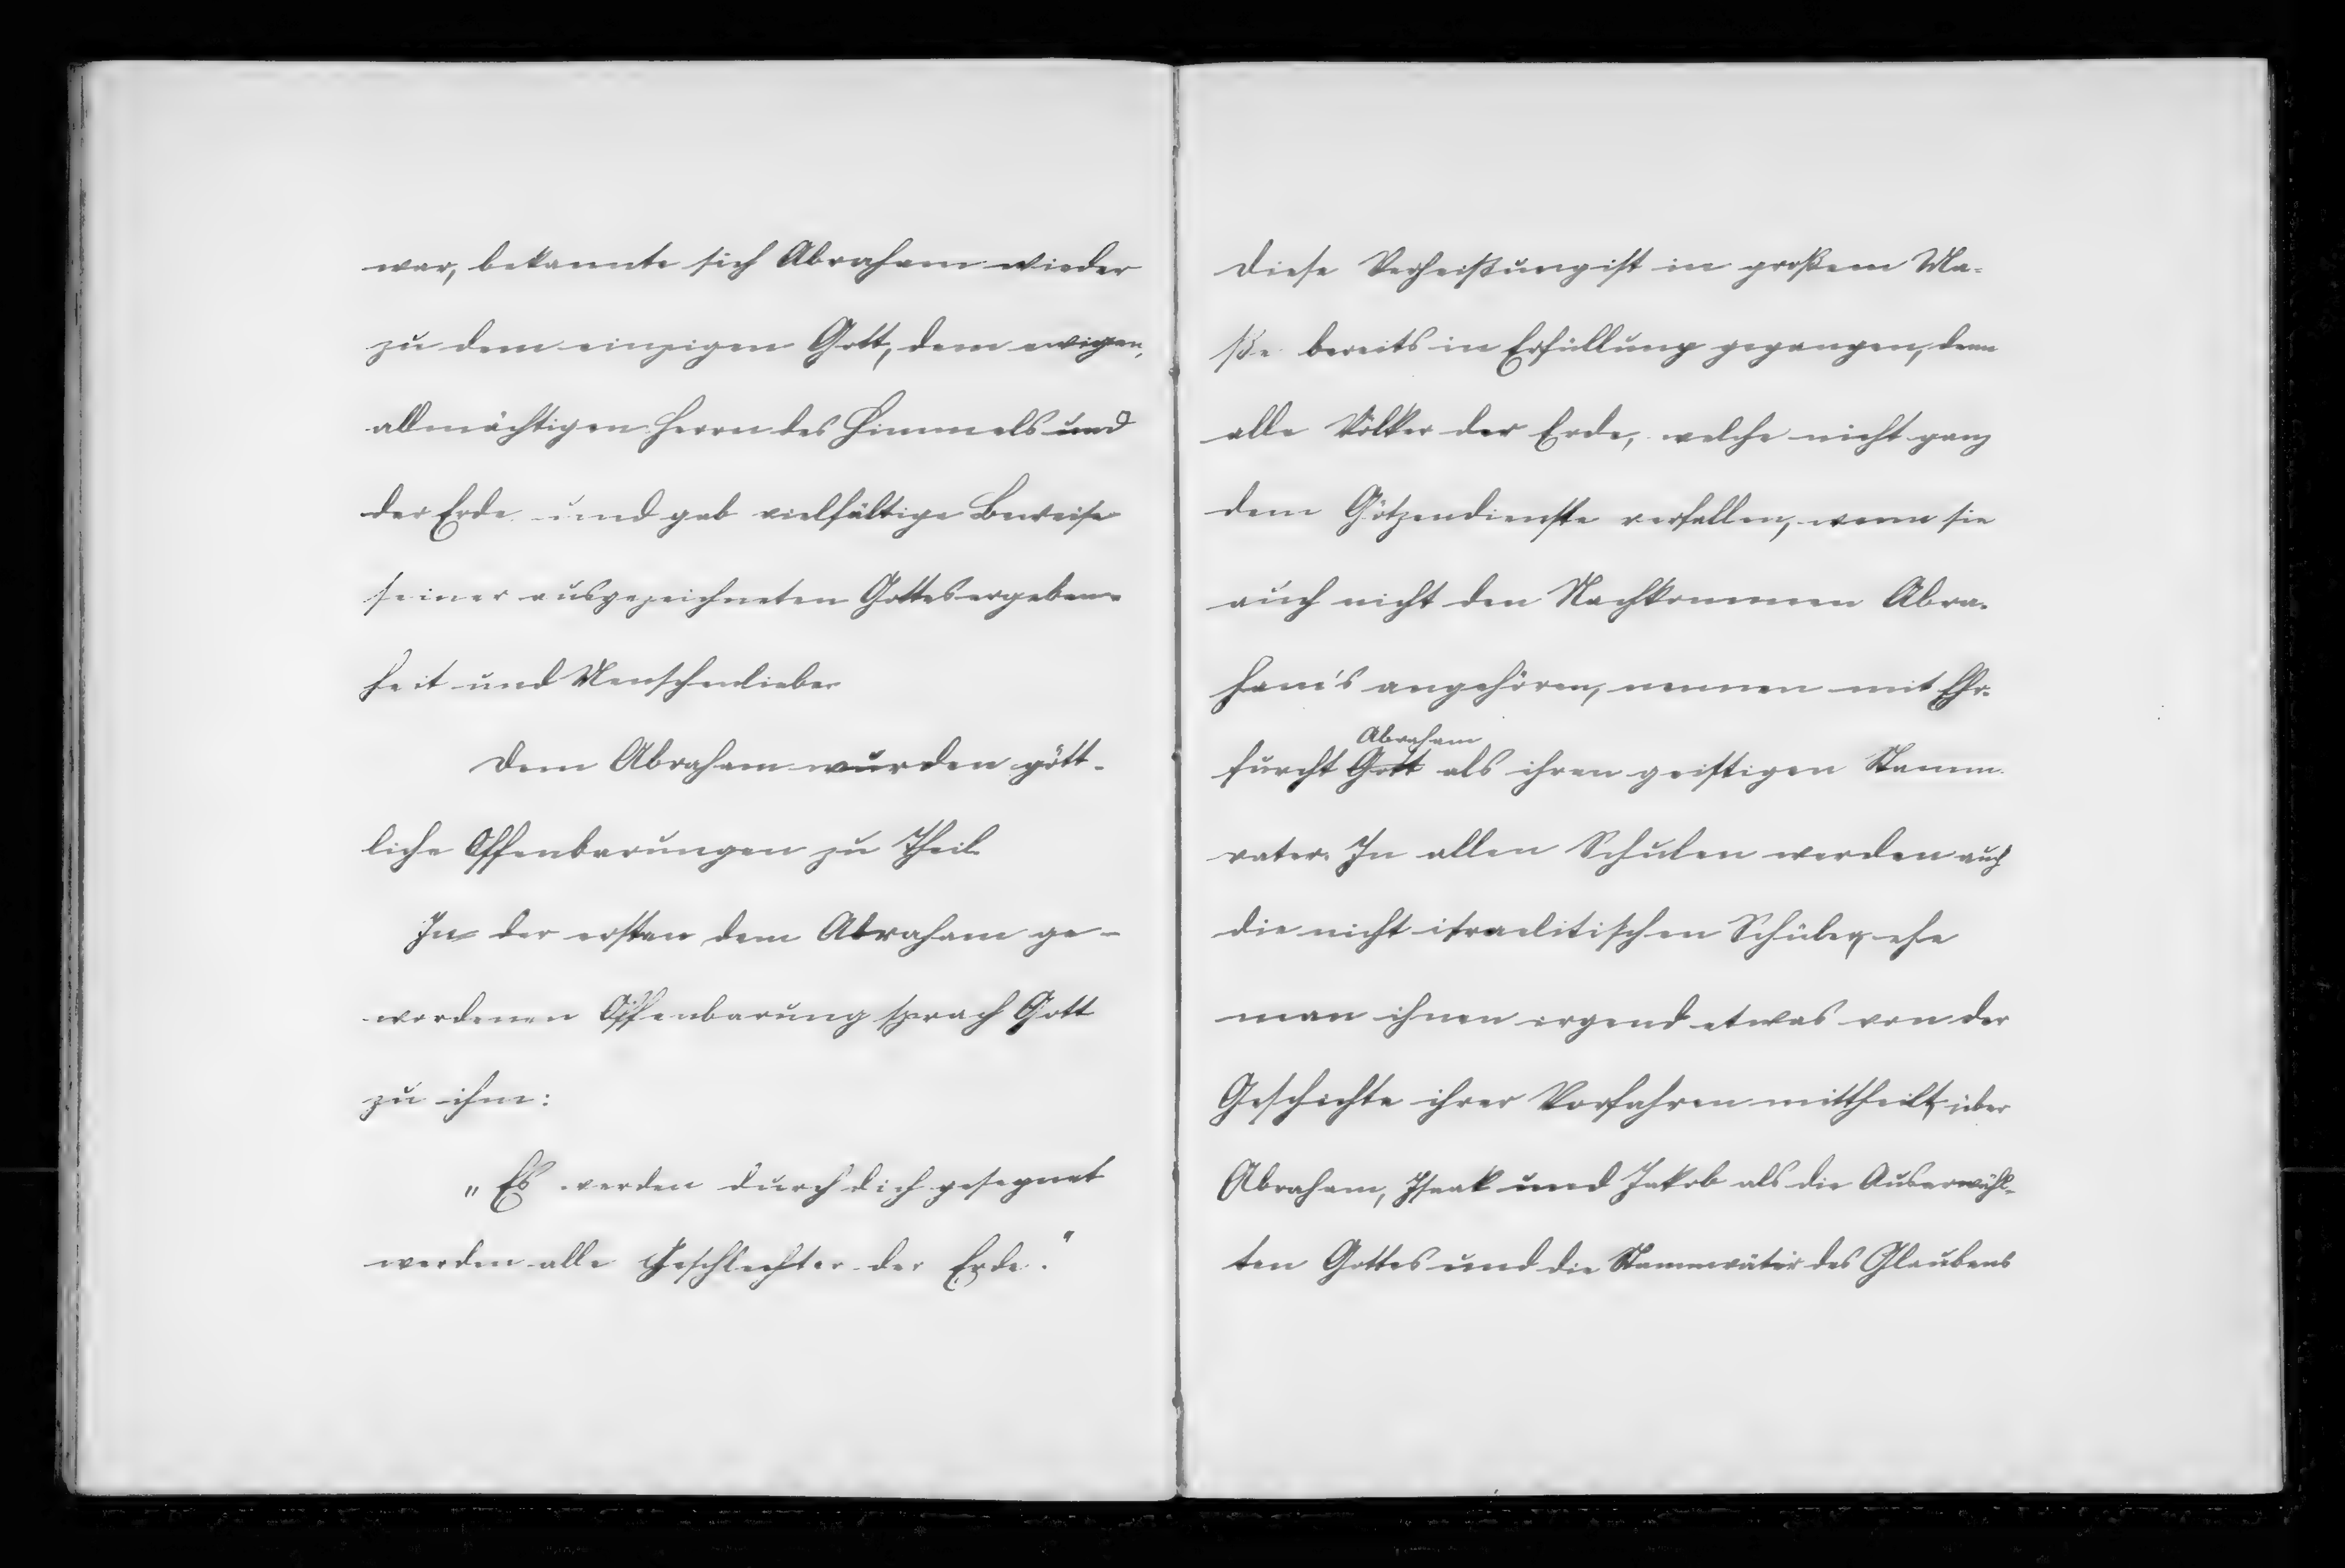 war, bekannte sich Abraham wieder
zu dem einzigen Gott, dem ewigen,
allmächtigen Herrn des Himmels und
der Erde und gab vielfältige Beweise
seiner ausgezeichneten Gottesergeben-
heit und Menschenliebe.
Dem Abraham wurden gött-
liche Offenbarungen zu Theil.
In der ersten dem Abraham ge-
wordenen Offenbarung sprach Gott
zu ihm:
„Es werden durch dich gesegnet
werden alle Geschlechter der Erde."
Diese Verheißung ist in großem Ma-
ße bereits in Erfüllung gegangen, denn
alle Völker der Erde, welche nicht ganz
dem Götzendienste verfallen, wenn sie
auch nicht den Nachkommen Abra-
ham's angehören, nennen mit Ehr-
Abraham
furcht Gott als ihren geistigen Stamm-
vater. In allen Schulen werden auch
die nicht israelitischen Schüler, ehe
man ihnen irgend etwas von der
Geschichte ihrer Vorfahren mittheilt, über
Abraham, Isaak und Jakob als die Auserwähl-
ten Gottes und die Stammväter des Glaubens